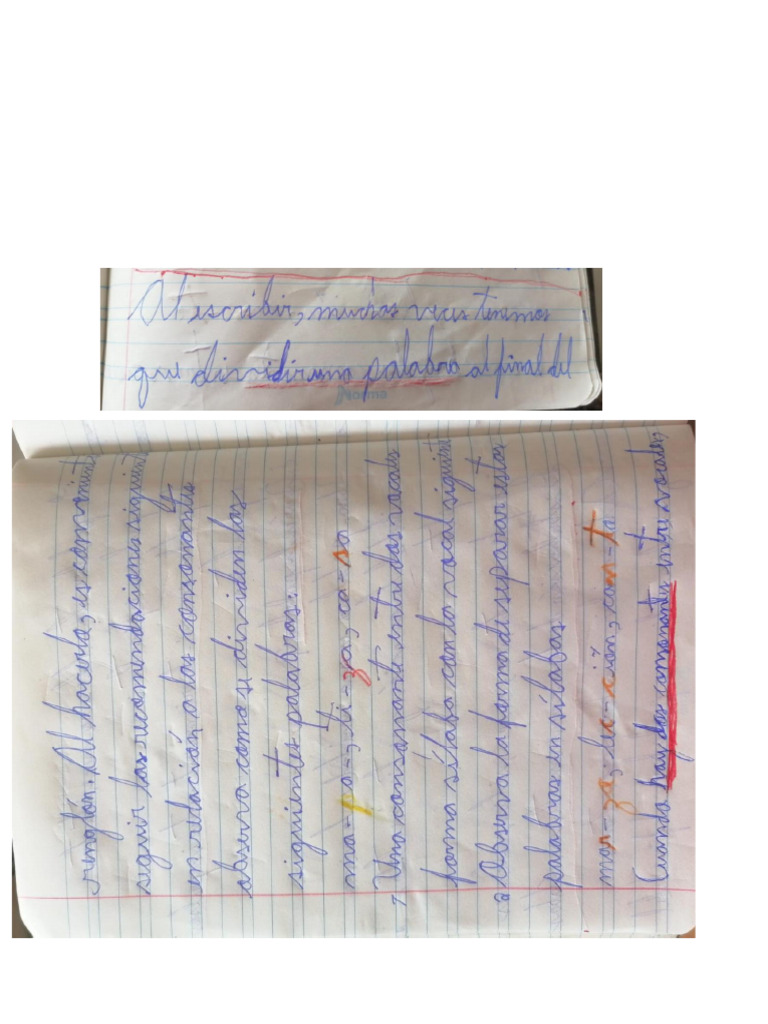 Al escribir, muchas veces tenemos
que dividir una palabra al final del
Norma
renglón. Al hacerlo, es conveniente
seguir las recomendaciones siguient
en relación a las consonantes
observa como se dividen las
siguientes palabras.
ma-pa-, ti-za, ca-sa
1 Una consonante entre dos vocales
forma sílaba con la vocal siguiente
2 Observa la forma de separar estas
palabras en sílabas
mar-zo, lec-ción, can-to
Cuando hay dos consonantes entre vocales,